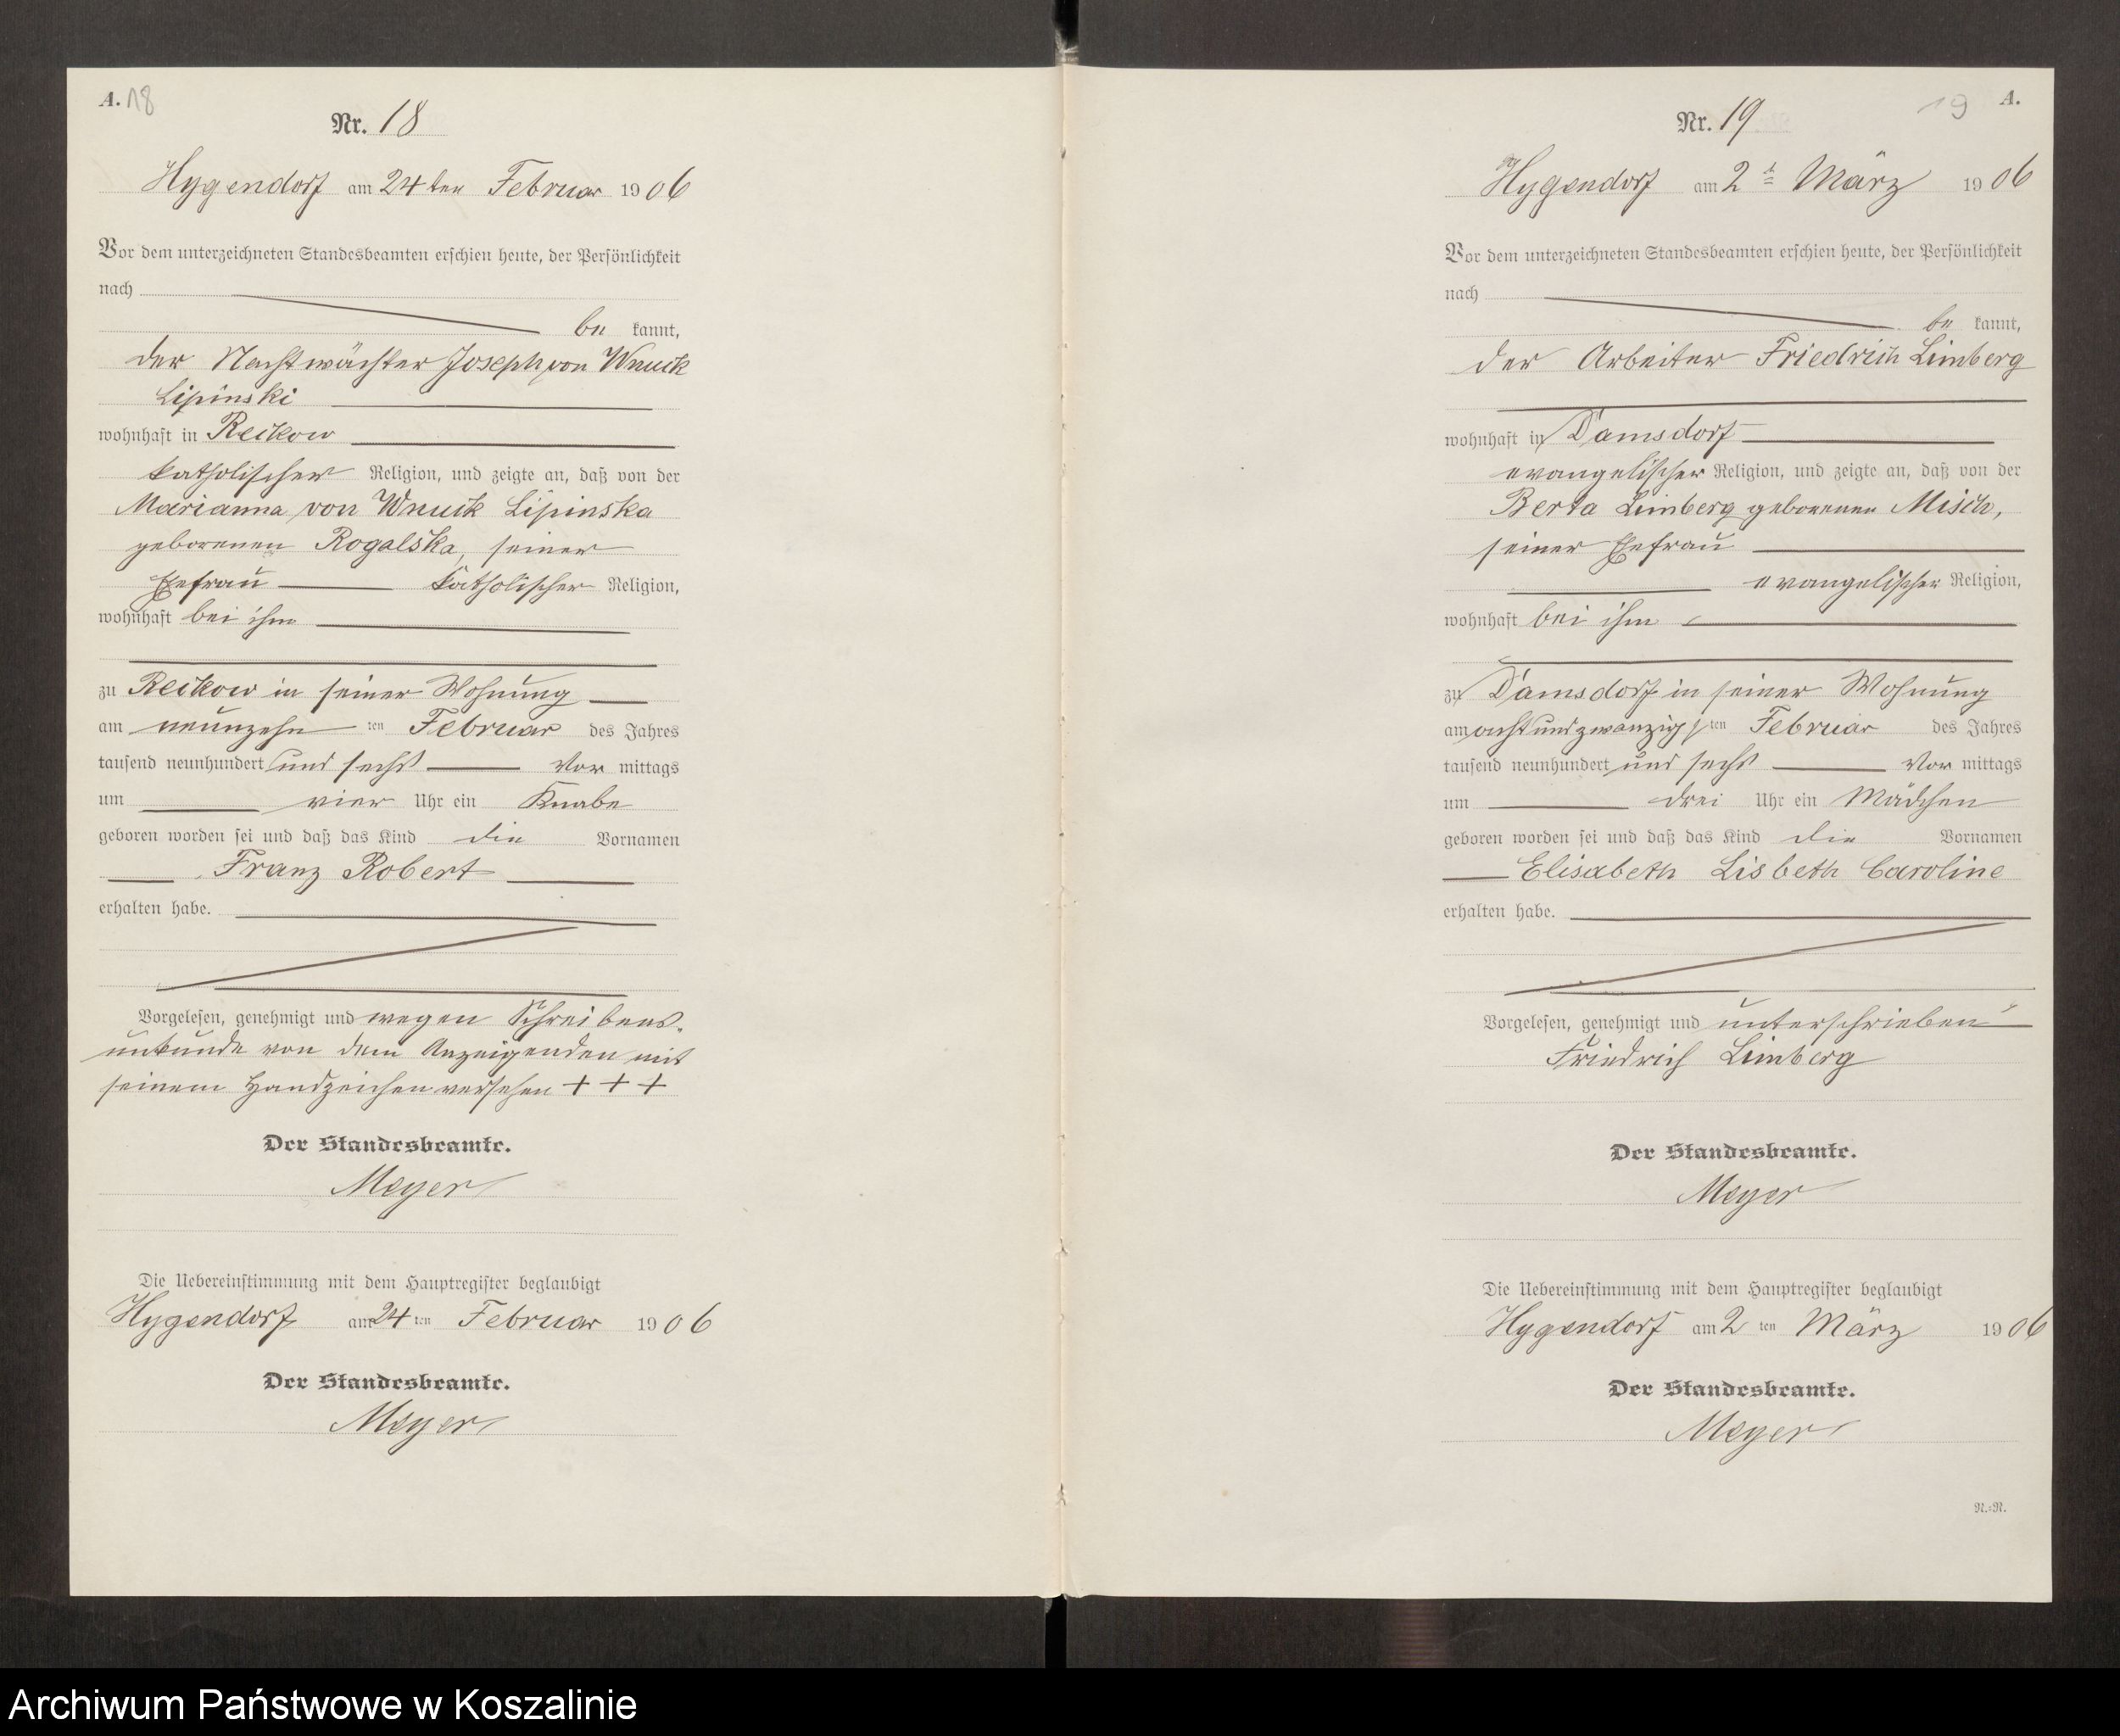 A. 18
Nr. 18
Hygendorf am 24ten Februar 1906
Vor dem unterzeichneten Standesbeamten erschien heute, der Persönlichkeit
nach
be kannt,
der Nachtwächter Joseph von Wnuck
Lipinski
wohnhaft in Reckow
katholischer Religion, und zeigte an, daß von der
Marianna von Wnuck Lipinska
geborenen Rogalska, seiner
Ehefrau katholischer Religion,
wohnhaft bei ihm
zu Reckow in seiner Wohnung
am neunzehn ten Februar des Jahres
tausend neunhundert und sechs Vor mittags
um vier Uhr ein Knabe
geboren worden sei und daß das Kind die Vornamen
Franz Robert
erhalten habe.
Vorgelesen, genehmigt und wegen Schreibens-
unkunde von dem Anzeigenden mit
seinem Handzeichen versehen + + +
Der Standesbeamte.
Meyer
Die Uebereinstimmung mit dem Hauptregister beglaubigt
Hygendorf am 24 ten Februar 1906
Der Standesbeamte.
Meyer
19 A.
Nr. 19
Hygendorf am 2t März 1906
Vor dem unterzeichneten Standesbeamten erschien heute, der Persönlichkeit
nach
be kannt,
der Arbeiter Friedrich Limberg
wohnhaft in Damsdorf
evangelischer Religion, und zeigte an, daß von der
Berta Limberg geborenen Misch,
seiner Ehefrau
evangelischer Religion,
wohnhaft bei ihm
zu Damsdorf in seiner Wohnung
am achtundzwanzigs ten Februar des Jahres
tausend neunhundert und sechs Vor mittags
um drei Uhr ein Mädchen
geboren worden sei und daß das Kind die Vornamen
Elisabeth Lisbeth Caroline
erhalten habe.
Vorgelesen, genehmigt und unterschrieben
Friedrich Limberg
Der Standesbeamte.
Meyer
Die Uebereinstimmung mit dem Hauptregister beglaubigt
Hygendorf am 2 ten März 1906
Der Standesbeamte.
Meyer
N.=N.
Archiwum Państwowe w Koszalinie